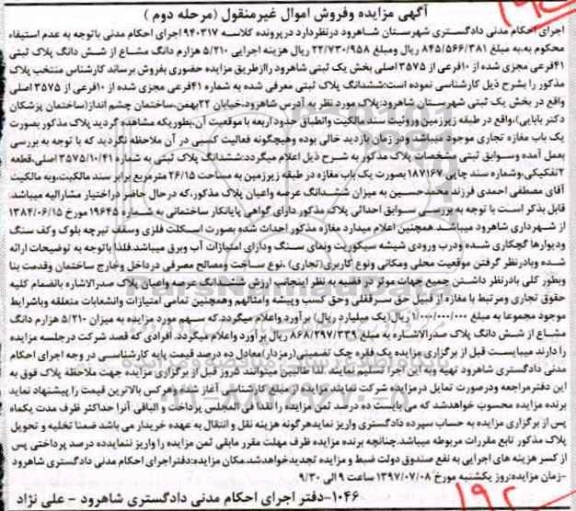 آگهی مزایده وفروش اموال غیرمنقول (مرحله دوم )
اجرای احکام مدنی دادگستری شهرستان شاهرود درنظردارد درپرونده کلاسه ۹۴۰۳۱۷ اجرای احکام مدنی باتوجه به عدم استیفاء
محکوم به،به مبلغ ۸۴۵/۵۶۶/۳۸۱ ریال ومبلغ ۲۲/۷۳۰/۹۵۸ ریال هزینه اجرایی ۵/۲۱۰ هزارم دانگ مشاع از شش دانگ پلاک ثبتی
۴۱فرعی مجزی شده از ۱۰فرعی از ۳۵۷۵ اصلی بخش یک ثبتی شاهرود راازطریق مزایده حضوری بفروش برساند کارشناس منتخب پلاک
مذکور را بشرح ذیل کارشناسی نموده است:ششدانگ پلاک ثبتی معرفی شده به شماره ۴۱فرعی مجزی شده از ۱۰فرعی از ۳۵۷۵ اصلی
واقع در بخش یک ثبتی شهرستان شاهرود:پلاک مورد نظر به آدرس شاهرود،خیابان ۲۲بهمن،ساختمان چشم انداز(ساختمان پزشکان
دکتر بابایی)،واقع در طبقه زیرزمین ورویت سند مالکیت وانطباق حدود اربعه با موقعیت آن،بطوریکه مشاهده گردید پلاک مذکوربصورت
یک باب مغازه تجاری موجود میباشد ودر زمان بازدید خالی بوده وهیچگونه فعالیت کسبی در آن ملاحظه نگردید که با توجه به بررسی
بعمل آمده وسوابق ثبتی مشخصات پلاک مذکور به شرح ذیل اعلام میگردد:ششدانگ پلاک ثبتی به شماره ۳۵۷۵/۱۰/۴۱ اصلی،قطعه
۲تفکیکی،به شماره سند چاپی ۱۸۷۱۶۷ بصورت یک باب مغازه در طبقه زیرزمین به مساحت ۲۶/۱۵ مترمربع برابر سند مالکیت،وبه مالکیت
آقای مصطفی احمدی فرزند محمدحسین به میزان ششدانگ عرصه واعیان پلاک مذکور،که در حال حاضر دراختیار مشارالیه میباشد.
قابل بذکر است با توجه به بررسی سوابق احداثی پلاک مذکور دارای گواهی پایانکار ساختمانی به شماره ۱۹۶۴۵ مورخ ۱۳۸۴/۰۶/۱۵
از شهرداری شاهرود میباشد.همچنین اعلام میدارد مغازه مذکور احداث شده بصورت اسکلت فلزی وسقف تیرچه بلوک وکف سنگ
ودیوارها گچکاری شده ودرب ورودی شیشه سیکوریت ونمای سنگ ودارای امتیازات آب وبرق میباشد.فلذا باتوجه به توضیحات ارائه
شده وبادرنظر گرفتن موقعیت محلی ومکانی ونوع کاربری(تجاری) ،نوع ساخت ومصالح مصرفی درداخل وخارج ساختمان وقدمت بنا
وبطور کلی بادرنظر داشتن جمیع جهات موثر در قضیه به نظر اینجانب ارزش ششدانگ عرصه واعیان پلاک صدرالاشاره بانضمام کلیه
حقوق تجاری ومرتبط با مغازه از قبیل حق سرقفلی وحق کسب وپیشه وامثالهم وهمچنین تمامی امتیازات وانشعابات متعلقه وباشرایط
موجود مجموعا به مبلغ ۱/۰۰۰/۰۰۰/۰۰۰ ریال(یک میلیارد ریال) برآورد واعلام میگردد،که سهم مورد مزایده به میزان ۵/۲۱۰ هزارم دانگ
مشاع از شش دانگ پلاک صدرالاشاره به مبلغ ۸۶۸/۲۹۷/۳۳۹ ریال برآورد واعلام میگردد. افرادی که قصد شرکت درجلسه مزایده
را دارند میبایست قبل از برگزاری مزایده یک فقره چک تضمینی(رمزدار)معادل ده درصد قیمت پایه کارشناسی در وجه اجرای احکام
مدنی دادگستری شاهرود تهیه وبه این اجرا تسلیم نمایند .لذا طالبین میتوانند ۵روز قبل از برگزاری مزایده جهت ملاحظه پلاک فوق به
این دفترمراجعه ودرصورت تمایل درمزایده شرکت نمایند.مزایده از مبلغ کارشناسی آغاز شده وهرکس بالاترین قیمت را پیشنهاد نماید
برنده مزایده محسوب خواهدشد که می بایست ده درصد ثمن مزایده را نقدا فی المجلس پرداخت و الباقی آنرا حداکثر ظرف مدت یکماه
پس از برگزاری مزایده به حساب سپرده دادگستری واریز نمایدهرگونه هزینه نقل و انتقال به عهده خریدار می باشد ضمنا تخلیه و تحویل
پلاک مذکور تابع مقررات مربوطه میباشد.چنانچه برنده مزایده ظرف مهلت مقرر مابقی ثمن مزایده را واریز ننماید،ده درصد پرداختی پس
از کسر هزینه های اجرایی به نفع صندوق دولت ضبط و مزایده تجدیدخواهدشد.مکان مزایده:دفتراجرای احکام مدنی دادگستری شاهرود
-زمان مزایده:روز یکشنبه مورخ ۱۳۹۷/۰۷/۰۸ ساعت ۹ الی ۹/۳۰
۱۰۴۶-دفتر اجرای احکام مدنی دادگستری شاهرود - علی نژاد